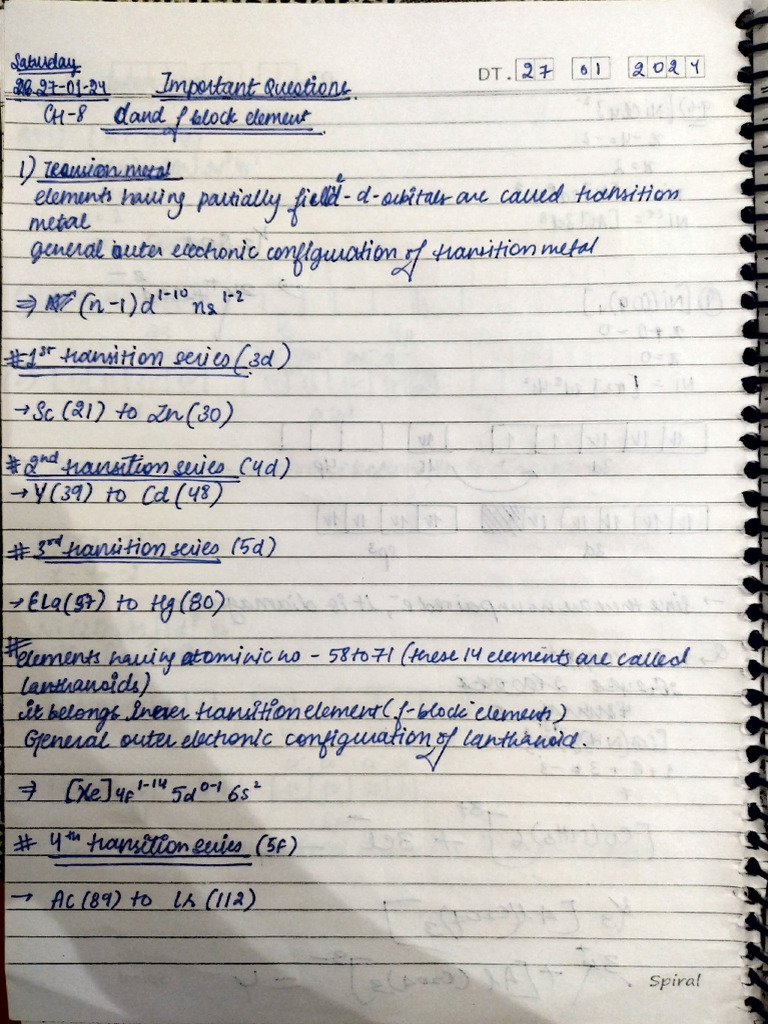 Saturday
DT. 27 01 2024
26.27-01-24 Important Questions
CH-8 d and f block element
1) Transion metal
elements having partially field-d-orbitals are called transition
metal
general outer electronic configuration of transition metal
⇒ (n-1)d¹⁻¹⁰ ns¹⁻²
#1ˢᵗ transition series (3d)
→ Sc(21) to Zn(30)
#2ⁿᵈ transition series (4d)
→ Y(39) to Cd(48)
#3ʳᵈ transition series (5d)
→ La(57) to Hg(80)
# elements having atominic no - 58 to 71 (these 14 elements are called
lanthanoids)
it belongs Inner transition element (f-block elements)
General outer electronic configuration of lanthanoid.
⇒ [Xe] 4f¹⁻¹⁴ 5d⁰⁻¹ 6s²
# 4ᵗʰ transition series (5f)
→ Ac(89) to (112)
Spiral